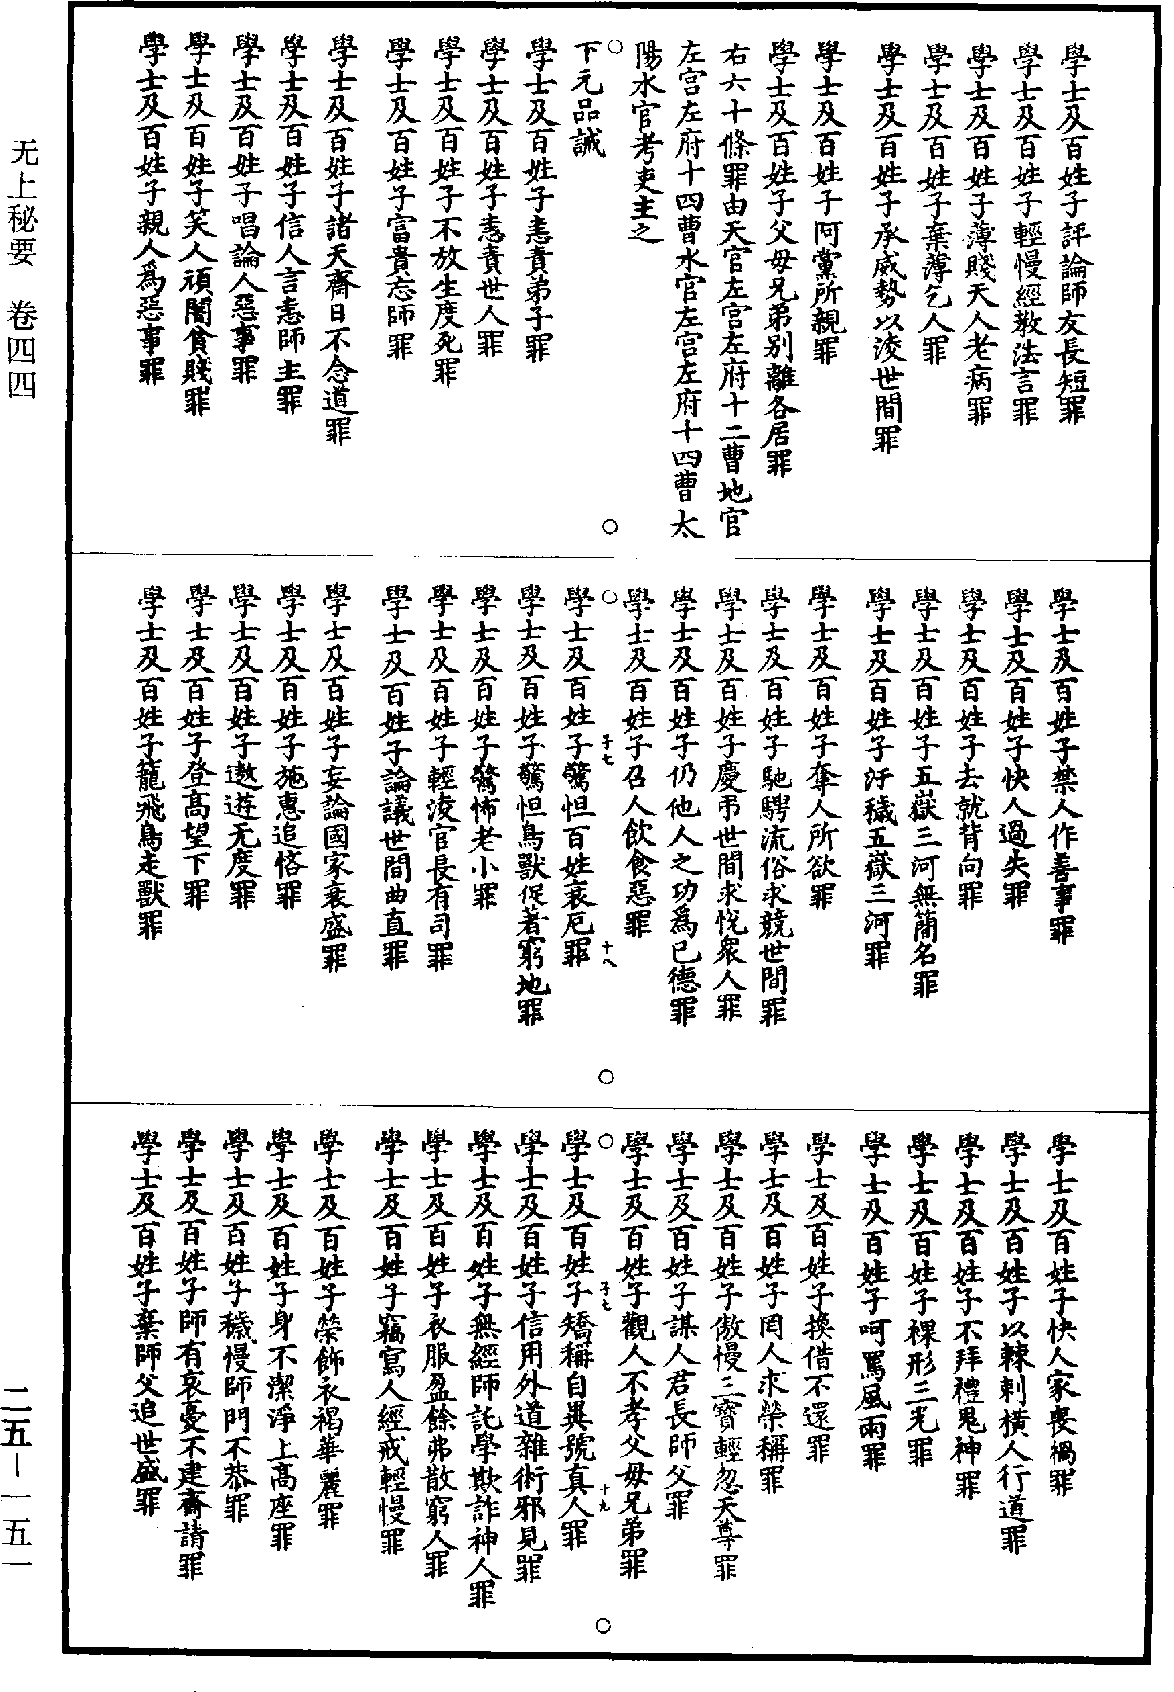 學士及百姓子評論師友長短罪
學士及百姓子輕慢經教法言罪
學士及百姓子薄賤天人老病罪
學士及百姓子棄薄乞人罪
學士及百姓子承威勢以淩世間罪
學士及百姓子阿黨所親罪
學士及百姓子父母兄弟別離各居罪
右六十條罪由天官左宮左府十二曹地官
左宮左府十四曹水官左宮左府十四曹太
陽水官考吏主之
下元品誡
學士及百姓子恚責弟子罪
學士及百姓子恚責世人罪
學士及百姓子不放生度死罪
學士及百姓子富貴忘師罪
學士及百姓子諸天齋日不念道罪
學士及百姓子信人言恚師主罪
學士及百姓子唱論人惡事罪
學士及百姓子笑人頑闇貧賤罪
學士及百姓子親人爲惡事罪
學士及百姓子禁人作善事罪
學士及百姓子快人過失罪
學士及百姓子去就背向罪
學士及百姓子五嶽三河無簡名罪
學士及百姓子汙穢五嶽三河罪
學士及百姓子奪人所欲罪
學士及百姓子馳騁流俗求競世間罪
學士及百姓子慶弔世間求悅衆人罪
學士及百姓子仍他人之功爲己德罪
學士及百姓子召人飲食惡罪
子七 十八
學士及百姓子驚怛百姓衰厄罪
學士及百姓子驚怛鳥獸促著窮地罪
學士及百姓子驚怖老小罪
學士及百姓子輕淩官長有司罪
學士及百姓子論議世間曲直罪
學士及百姓子妄論國家衰盛罪
學士及百姓子施惠追悋罪
學士及百姓子遨遊无度罪
學士及百姓子登高望下罪
學士及百姓子籠飛鳥走獸罪
學士及百姓子快人家喪禍罪
學士及百姓子以棘刺橫人行道罪
學士及百姓子不拜禮鬼神罪
學士及百姓子裸形三光罪
學士及百姓子呵罵風雨罪
學士及百姓子換借不還罪
學士及百姓子罔人求榮稱罪
學士及百姓子傲慢三寶輕忽天尊罪
學士及百姓子謀人君長師父罪
學士及百姓子觀人不孝父母兄弟罪
子七 十九
學士及百姓子矯稱自異號真人罪
學士及百姓子信用外道雜術邪見罪
學士及百姓子無經師託學欺詐神人罪
學士及百姓子衣服盈餘弗散窮人罪
學士及百姓子竊寫人經戒輕慢罪
學士及百姓子榮飾衣褐華麗罪
學士及百姓子身不潔淨上高座罪
學士及百姓子穢慢師門不恭罪
學士及百姓子師有哀憂不建齋請罪
學士及百姓子棄師父追世盛罪
无上秘要 卷四四
二五—一五一